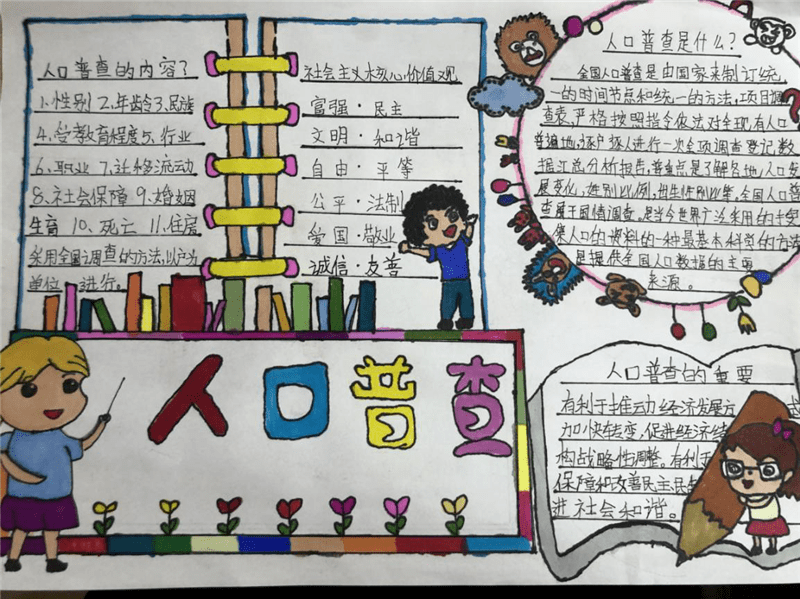 人口普查的内容?
1.性别 2.年龄 3.民族
4.受教育程度 5.行业
6.职业 7.迁移流动
8.社会保障 9.婚姻
生育 10.死亡 11.住房
采用全国调查的方法,以户为
单位 进行。
社会主义核心价值观
富强·民主
文明·和谐
自由·平等
公平·法制
爱国·敬业
诚信·友善
人口普查是什么?
全国人口普查是由国家来制订统
一的时间节点和统一的方法,项目调
查表,严格按照指令依法对全现有人口
普遍地,逐户逐人进行一次全项调查登记,数
据汇总分析报告,普查重点是了解各地,人口发
展变化,性别比例,出生性别比等,全国人口普
查属于国情调查,是当今世界广泛采用的
集人口的资料的一种最基本科学的方法
是提供全国人口数据的主要
来源。
人口普查
人口普查的重要
有利于推动经济发展方
加快转变,促进经济结
构战略性调整。有利于
保障和改善民主民
进社会和谐。